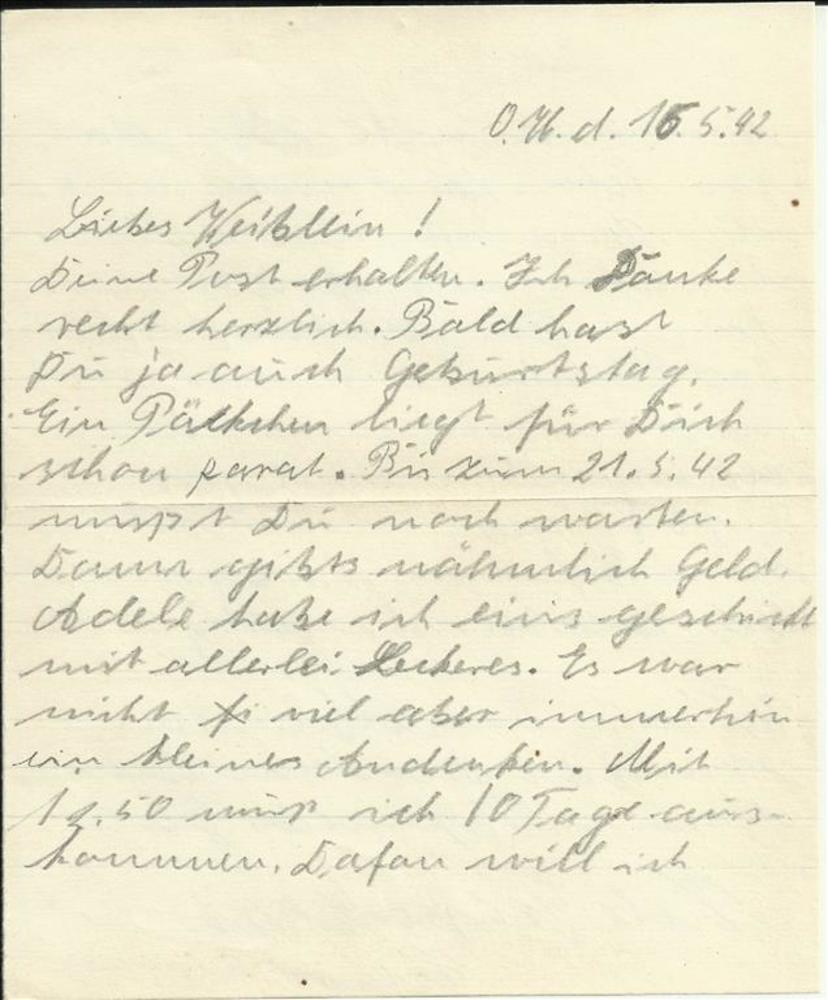 O.U. d. 16.5.42
Liebes Weiblein!
Deine Post erhalten. Ich Danke
recht herzlich. Bald hast
Du ja auch Geburtstag.
Ein Päckchen liegt für Dich
schon parat. Bis zum 21.5.42
mußt Du noch warten.
Dann gibts nähmlich Geld.
Adele habe ich eins geschickt
mit allerlei Leckeres. Es war
nicht viel aber immerhin
ein kleines Andenken. Mit
muß ich 10 Tage aus-
kommen. Dafon will ich